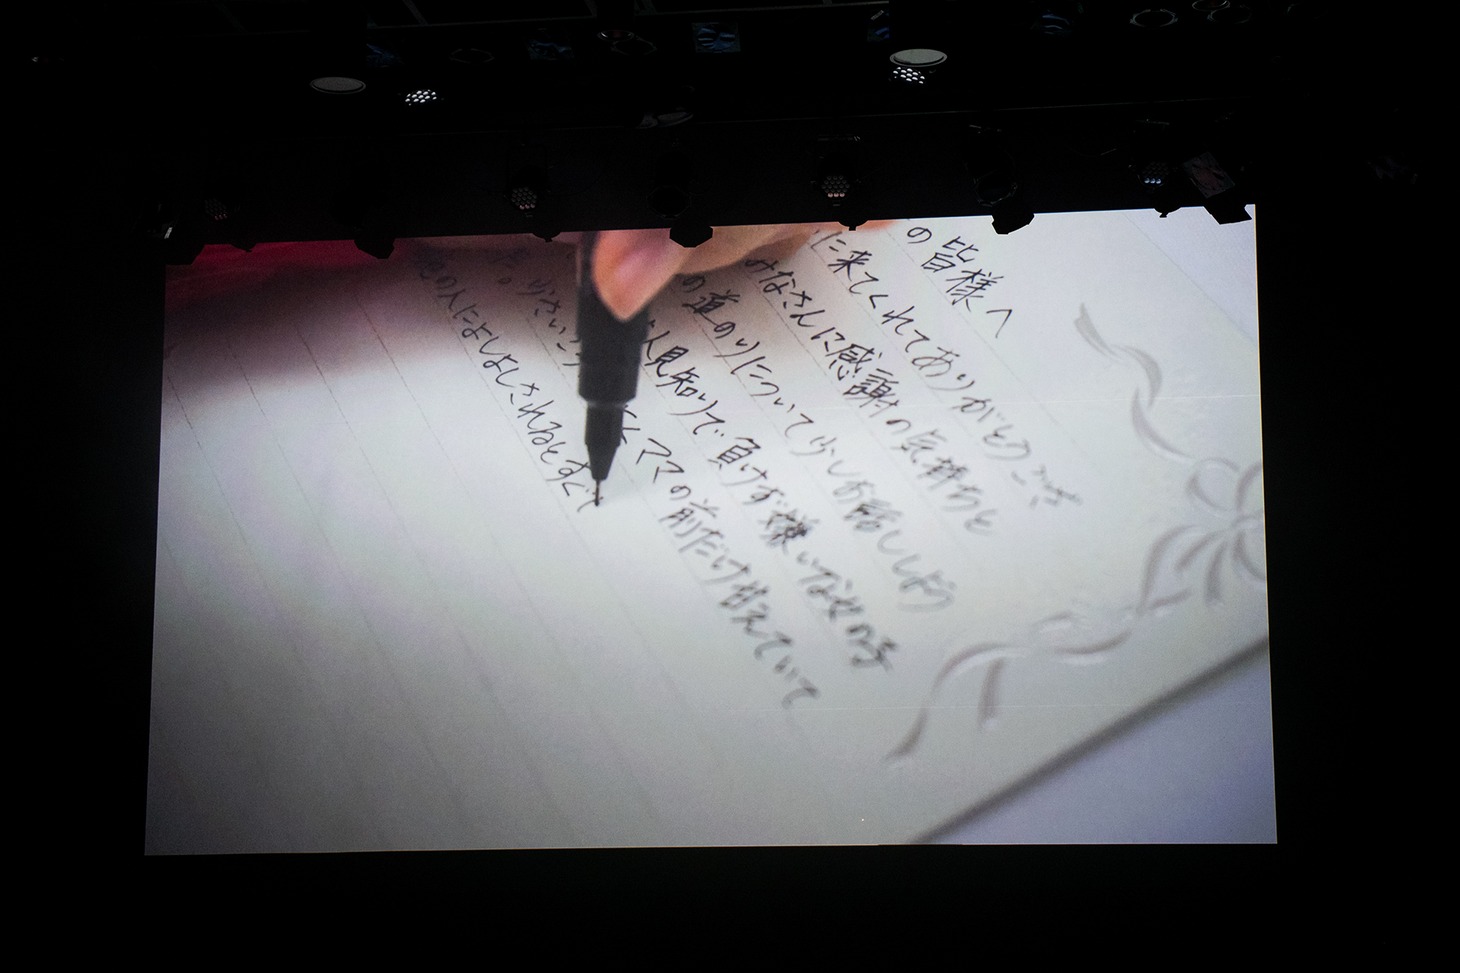 の皆様へ
に来てくれてありがとうござ
みなさんに感謝の気持ちと
の道のりについて少しお話ししよう
人見知りで負けず嫌いな女の子
ママの前だけ甘えていて
他の人によしよしされるとすぐ